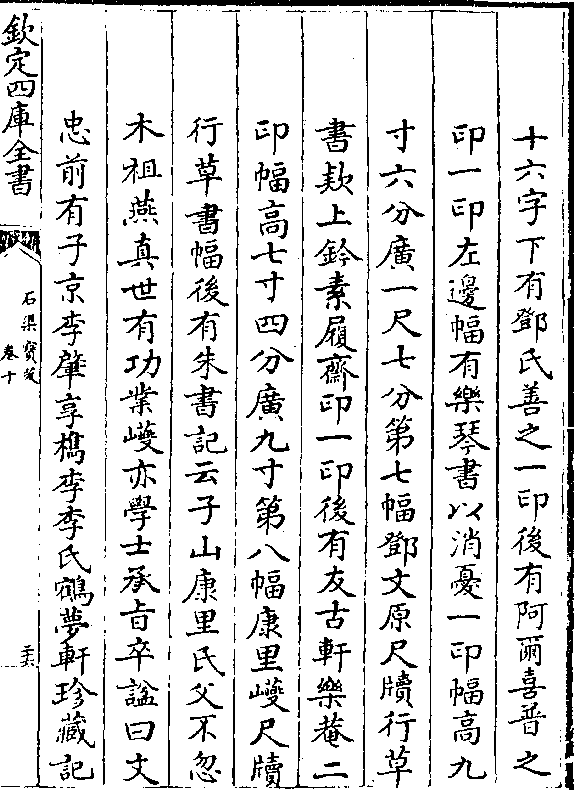 十六字下有鄧氏善之一印後有阿爾喜普之
印一印左邊幅有樂琴書以消憂一印幅高九
寸六分廣一尺七分第七幅鄧文原尺牘行草
書欵上鈐素履齋印一印後有友古軒樂菴二
印幅高七寸四分廣九寸第八幅康里巙尺牘
行草書幅後有朱書記云子山康里氏父不忽
木祖燕真世有功業巙亦學士承旨卒諡曰文
忠前有子京李肇享檇李李氏鶴夢軒珍藏記
欽定四庫全書
石渠寶笈
卷十